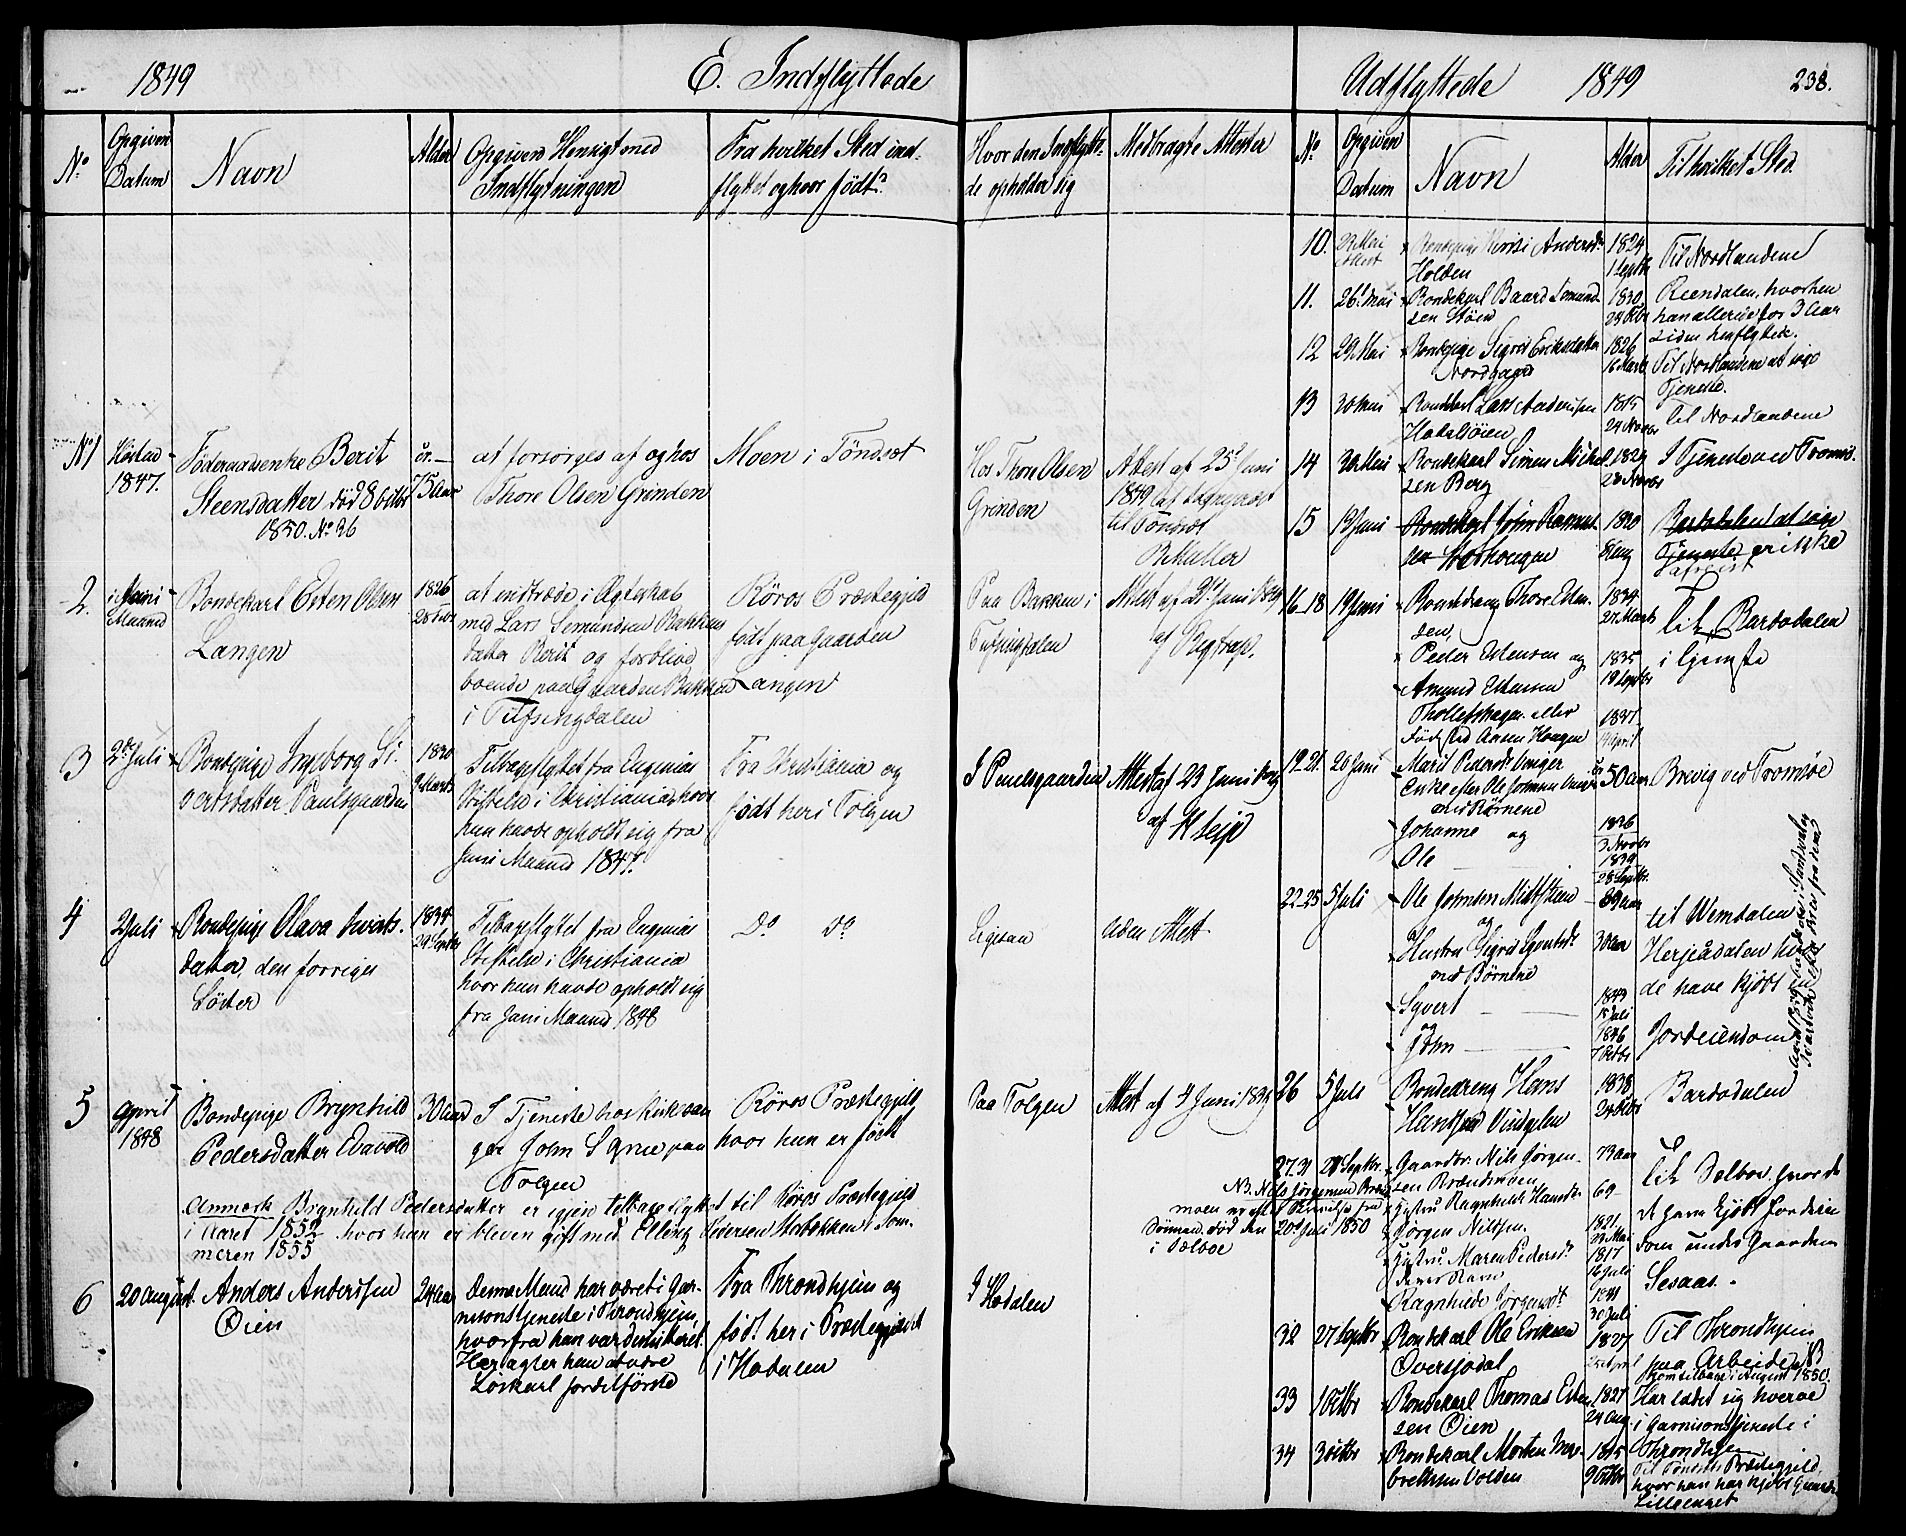 1849
E. Indflyttede
No
Opgiven
Datum
Navn
Alder
Opgiven Hensigt med
Indflytningen
Fra hvilket Sted ind-
flyttet og hvor født?
Hvor den Indflytte-
de opholder sig
Medbragte Attester
No 1
Høsten
1847.
Føderaadsenke Berit
Steensdatter død 8 Octbr
1850. No 36
75 Aar
at forsørges af og hos
Thore Olsen Grinden
Moen i Tøndset
Hos Thore Olsen
Grinden
Attest af 25d Juni
1849 af Sognepræst
til Tøndset
2.
i Juni
Maaned
Bondekarl Esten Olsen
Langen
1826
at indtræde i Ægteskab
med Lars Semundsen Bakkens
datter Berit og forblive
boende paa Gaarden Bakken
i Tufsingdalen
Røros Præstegjeld
født paa Gaarden
Langen
Paa Bakken i
Tufsingdalen
Attest af 21d Juni 1849
af
3
2d Juli
Bondepige Ingeborg Si-
vertsdatter Paulsgaarden
1830
9 Marts
Tilbageflyttet fra Eugenias
Stiftelse i Christiania, hvor
hun havde opholdt sig fra
Juni Maaned 1847.
Fra Christiania og
født her i Tolgen
I Poulsgaarden
Attest af 23 Juni 1849
af
4
2 Juli
Bondepige Olava Siverts-
datter, den forriges
Søster
1834
29 Septbr
Tilbageflyttet fra Eugenias
Stiftelse i Christiania
hvor hun havde opholdt sig
fra Juni Maaned 1848
Do do
Ligesaa
Uden Attest
5
April
1848
Bondepige Brynhild
Pedersdatter Evavold
30 Aar
I Tjeneste hos Kirkesan-
ger John S Grue paa
Tolgen
Røros Præstegjeld
hvor hun er født
Paa Tolgen
Attest af 4 Juni 1849
Anmærk Brynhild Pedersdatter er igjen tilbageflyttet til Røros Præstegjeld
i Aaret 1852 hvor hun er bleven gift med Elling Pedersen Stabekken i Som-
meren 1855
6
20 August
Anders Anderssen
Øien
24 Aar
Denne Mand har været i Gar-
nisonstjeneste i Throndhjem,
hvorfra han var demitteret.
Her agter han at være
Løskarl for det første
Fra Throndhjem og
født her i Præstegjeldet
i Hodalen
I Hodalen
Udflyttede
1849
238.
No
Opgiven
Datum
Navn
Alder
Til hvilket Sted.
10.
23 Mai
Bondepige Andersdr
Holden
1824
1 Septbr
Til Nordlandene
11.
26 Mai
Bondekarl Baard Semund-
sen Støen
1830
Reendalen, hvorhen
han allerede for 3 Aar
siden henflyttede.
12
29 Mai
Bondepige Sigrid Eriksdatter
Nordgaard
1826
16 Marts
Til Nordlandene at søge
Tjeneste.
13
30 Mai
Bondekarl Lars Andersen
1815
24 Novbr
Til Nordlandene
14
30 Mai
Bondekarl Simen Mickel-
sen Berg
1829
23 Novbr
I Tjeneste ved Tromsø.
15
19 Juni
Bondekarl John Rasmus-
sen
1830
Bardodalen at søge
Tjeneste er ikke
afreist
16-18
19 Juni
Bondedreng Thore Esten-
sen,
Peder Estensen og
Amund Estensen
eller
1834
27 Marts
1835
19 Septbr
1837
April
Til Bardodalen
i Tjeneste
19-21.
20 Juni
Marit Pedersdr
Enke efter Ole Johnsen
med Børnene
Johanne og
Ole
50 Aar
1836
3 Novbr
1839
28 Septbr
Brevig ved Tromsøe
22-25
5 Juli
Ole Johnsen
og
Hustru Sigrid
med Børnene
Syvert
og
John
39 Aar
30 Aar
1844
15 Juli
1846
7 Octbr
til Wemdalen
Herjeådalen hvor
de have kjøbt
Jordeiendom
26
5 Juli
Bondedreng Hans
Hansen Vingelen
1838
Bardodalen
27-31
29 Septbr
Gaardbr. Nils Jørgen-
sen Brændmoen
Hustru Ragnhild Hansdr
Jørgen Nilssen
Hustru Maren Pedersdr
deres Barn
Ragnhilde Jørgensdr
73 Aar
69 -
1821
23 Mai
1817
16 Juli
1841
30 Juli
til Selboe, hvor de
have kjøbt Jordeien-
dom under Gaarden
Sesaas.
NB. Nils Jørgensen Brænd-
moen er efter fra
Sønnen død den 20d Juni 1850
i Selboe
32
27 Septbr
Bondekarl Ole Eriksen
Øversjødal
1827
Til Throndhjem
paa Arbeide NB
Kom tilbage i August 1850.
33
1 Octbr
Bondekarl Thomas Esten-
sen Øien
1827
24 Aug.
Har ladet sig hverve
i Garnisonstjeneste i
Throndhjem
34
3 Octbr
Bondekarl Morten Inge-
brethsen Volden
1815
9 Octbr
Til Tøndsets Præstegjeld,
hvor han har kjøbt Gaarden
Lilleenget